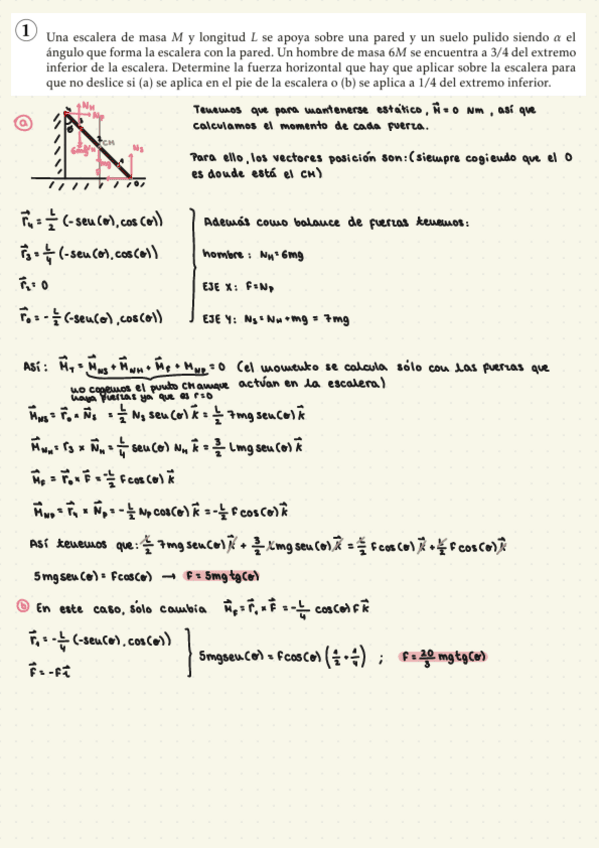 1
Una escalera de masa M y longitud L se apoya sobre una pared y un suelo pulido siendo α el
ángulo que forma la escalera con la pared. Un hombre de masa 6M se encuentra a 3/4 del extremo
inferior de la escalera. Determine la fuerza horizontal que hay que aplicar sobre la escalera para
que no deslice si (a) se aplica en el pie de la escalera o (b) se aplica a 1/4 del extremo inferior.
a
Tenemos que para mantenerse estático, M⃗ = 0 Nm, así que
calculamos el momento de cada fuerza.
Para ello, los vectores posición son: (siempre cogiendo que el 0
es donde está el CM)
r⃗₄ = L/2 (-sen(θ), cos(θ))
Además como balance de fuerzas tenemos:
r⃗₃ = L/4 (-sen(θ), cos(θ))
hombre: N_H = 6mg
r⃗₂ = 0
EJE X: F = N_P
r⃗₀ = -L/2 (-sen(θ), cos(θ))
EJE Y: N_S = N_H + mg = 7mg
Así: M⃗_T = M⃗_NS + M⃗_NH + M⃗_F + M⃗_NP = 0 (el momento se calcula sólo con las fuerzas que
actúan en la escalera)
no cogemos el punto CM aunque
haya fuerzas ya que es r=0
M⃗_NS = r⃗₀ × N⃗_S = L/2 N_S sen(θ) k⃗ = L/2 7mg sen(θ) k⃗
M⃗_NH = r₃ × N⃗_H = L/4 sen(θ) N_H k⃗ = 3/2 Lmg sen(θ) k⃗
M⃗_F = r⃗₀ × F⃗ = -L/2 F cos(θ) k⃗
M⃗_NP = r⃗₄ × N⃗_P = -L/2 N_P cos(θ) k⃗ = -L/2 F cos(θ) k⃗
Así tenemos que: L/2 7mg sen(θ) k⃗ + 3/2 Lmg sen(θ) k⃗ = L/2 F cos(θ) k⃗ + L/2 F cos(θ) k⃗
5mg sen(θ) = F cos(θ) → F = 5mg tg(θ)
b En este caso, sólo cambia M⃗_F = r⃗₁ × F⃗ = -L/4 cos(θ) F k⃗
r⃗₁ = -L/4 (-sen(θ), cos(θ))
5mg sen(θ) = F cos(θ) (1/2 + 1/4) ; F = 20/3 mg tg(θ)
F⃗ = -F i⃗